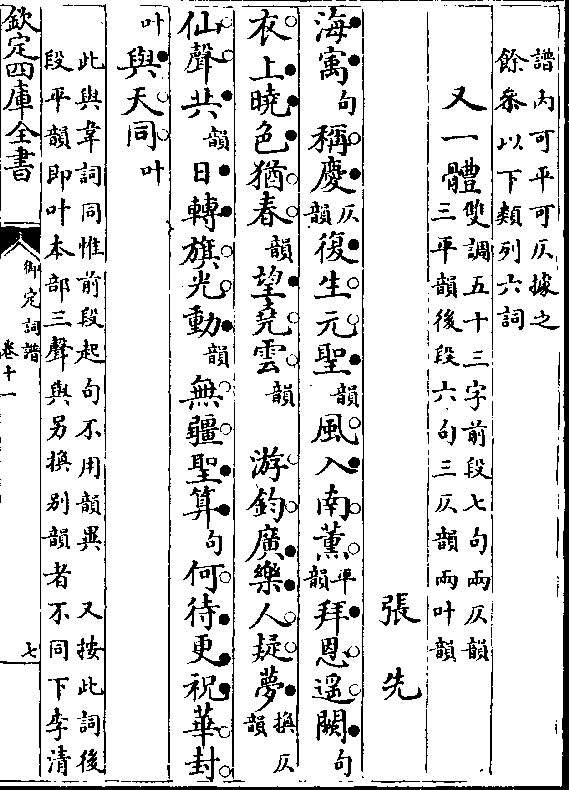 譜內可平可仄據之
餘叅以下類列六詞
又一體 雙調五十三字前段七句兩仄韻
三平韻後段六句三仄韻兩叶韻
張先
海寓句稱慶仄韻復生元聖韻風入南薰平韻拜恩遥闕句
衣上曉色猶春韻望堯雲韻 游鈞廣樂人疑夢換仄韻
仙聲共韻日轉旗光動韻無疆聖算句何待更祝華封
叶與天同叶
此與韋詞同惟前段起句不用韻異 又按此詞後
段平韻即叶本部三聲與另換別韻者不同下李清
欽定四庫全書
御定詞譜
卷十一
七